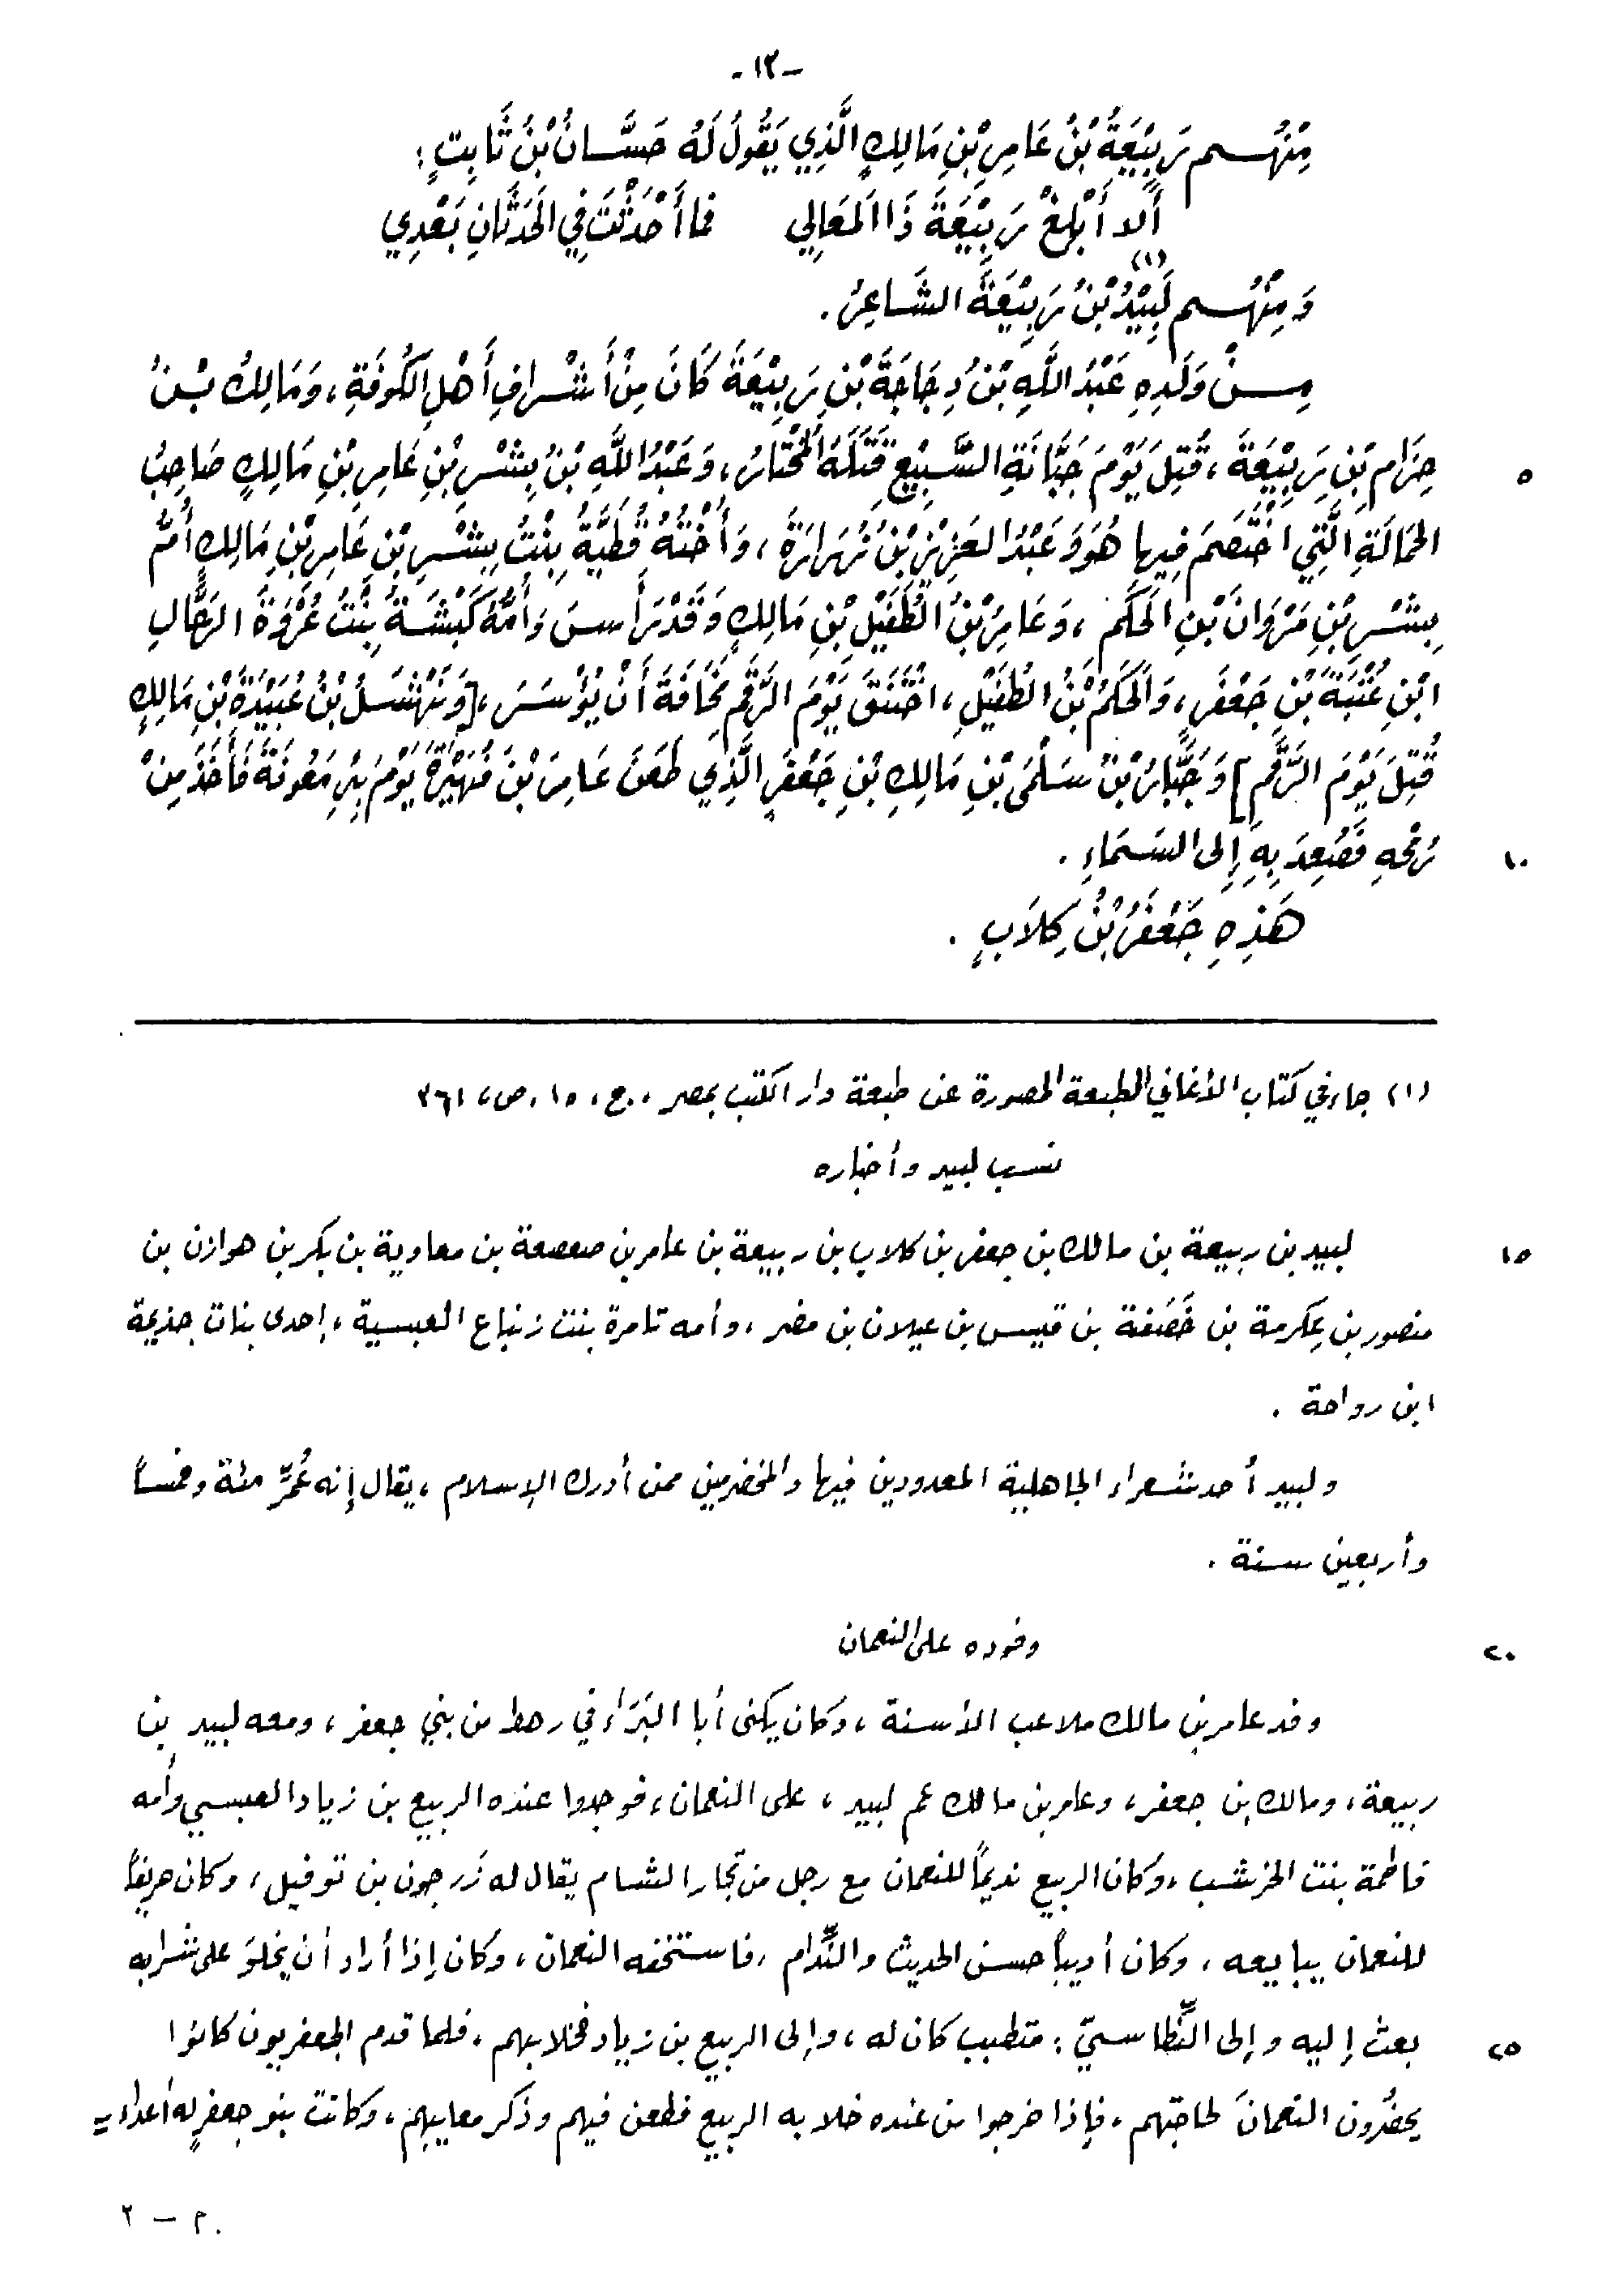 -١٣-
مِنْهُم رَبِيْعَةُ بْنُ عَامِرِ بْنِ مَالِكٍ الَّذِي يَقُولُ لَهُ حَسَّانُ بْنُ ثَابِتٍ :
أَلا أَبْلِغْ رَبِيْعَةَ ذَا الَمعَالِي     فما أَحْدَثْتَ فِي الَحدَثَانِ بَعْدِي
وَمِنْهُم لَبِيْدُ بْنُ رَبِيْعَةَ الشَّاعِرُ . (١)
مِنْ وَلَدِهِ عَبْدُ اللَّهِ بْنُ دِجَاجَةَ بْنِ رَبِيْعَةَ كَانَ مِنْ أَشْرَافِ أَهْلِ الكُوفَةِ ، وَمَالِكُ بْنُ
٥ حِزَامِ بْنِ رَبِيْعَةَ ، قُتِلَ يَوْمَ جَبَّانَةِ السَّبِيْعِ قَتَلَهُ الُمخْتَارُ ، وَعَبْدُ اللَّهِ بْنُ بِشْرِ بْنِ عَامِرِ بْنِ مَالِكٍ صَاحِبُ
الحَمَالَةِ الَّتِي اخْتَصَمَ فِيها هُوَ وَعَبْدُ العَزِيْزِ بْنُ زُرَارَةَ ، وَأُخْتُهُ قُطَيَّةُ بِنْتُ بِشْرِ بْنِ عَامِرِ بْنِ مَالِكٍ أُمُّ
بِشْرِ بْنِ مَرْوَانَ بْنِ الَحكَمِ ، وَعَامِرُ بْنُ الطُّفَيْلِ بْنِ مَالِكٍ وَقَدْ رَأَسَ وَأُمُّهُ كَبْشَةُ بِنْتُ عُرْوَةَ الرَّحَّالِ
ابْنِ عُتْبَةَ بْنِ جَعْفَرٍ ، وَالَحكَمُ بْنُ الطُّفَيْلِ ، اخْتَنَقَ يَوْمَ الرَّقَمِ مَخَافَةَ أَنْ يُؤْسَرَ ، [وَنَهْشَلُ بْنُ عُبَيْدَةَ بْنِ مَالِكٍ
قُتِلَ يَوْمَ الرَّقَمِ] وَجَبَّارُ بْنُ سَلْمَى بْنِ مَالِكِ بْنِ جَعْفَرٍ الَّذِي طَعَنَ عَامِرَ بْنَ فُهَيْرَةَ يَوْمَ بِئْرِ مَعُونَةَ فَأَخَذَ مِنْ
١٠ رُمْحِهِ فَصُعِدَ بِهِ إِلى السَّمَاءِ .
هَذِهِ جَعْفَرُ بْنُ كِلَابٍ .
(١) جاء في كتاب الأغاني الطبعة المصورة عن طبعة دار الكتب بمصر ، ج ، ١٥ ، ص، ٣٦١
نسب لبيد وأخباره
١٥ لبيد بن ربيعة بن مالك بن جعفر بن كلاب بن ربيعة بن عامر بن صعصعة بن معاوية بن بكر بن هوازن بن
منصور بن عِكرمة بن خَصَفة بن قيس بن عيلان بن مضر ، وأمه تامرة بنت زنباع العبسية ، إحدى بنات جذيمة
ابن رواحة .
ولبيد أحد شعراء الجاهلية المعدودين فيها والمخضرمين ممن أدرك الإسلام ، يقال إنه عُمِّرَ مئة وخمساً
وأربعين سنة .
٢٠ وفوده على النعمان
وفد عامر بن مالك ملاعب الأسنة ، وكان يكنى أبا البَرَاء في رهط من بني جعفر ، ومعه لبيد بن
ربيعة ، ومالك بن جعفر ، وعامر بن مالك عم لبيد ، على النعمان ، فوجدوا عنده الربيع بن زياد العبسي وأمه
فاطمة بنت الخرشب ، وكان الربيع نديماً للنعمان مع رجل من تجار الشام يقال له زَرجون بن توفيل ، وكان حريفاً
للنعمان يبايعه ، وكان أديباً حسن الحديث والنِّدام ، فاستخفه النعمان ، وكان إذا أراد أن يخلوَ على شرابه
٢٥ بعث إليه وإلى النِّطاسيّ : متطبب كان له ، وإلى الربيع بن زياد فخلا بهم ، فلما قدم الجعفريون كانوا
يحضُرون النعمانَ لحاجتهم ، فإذا خرجوا من عنده خلا به الربيع فطعن فيهم وذكر معايبهم ، وكانت بنو جعفرٍ له أعداء =
م - ٢